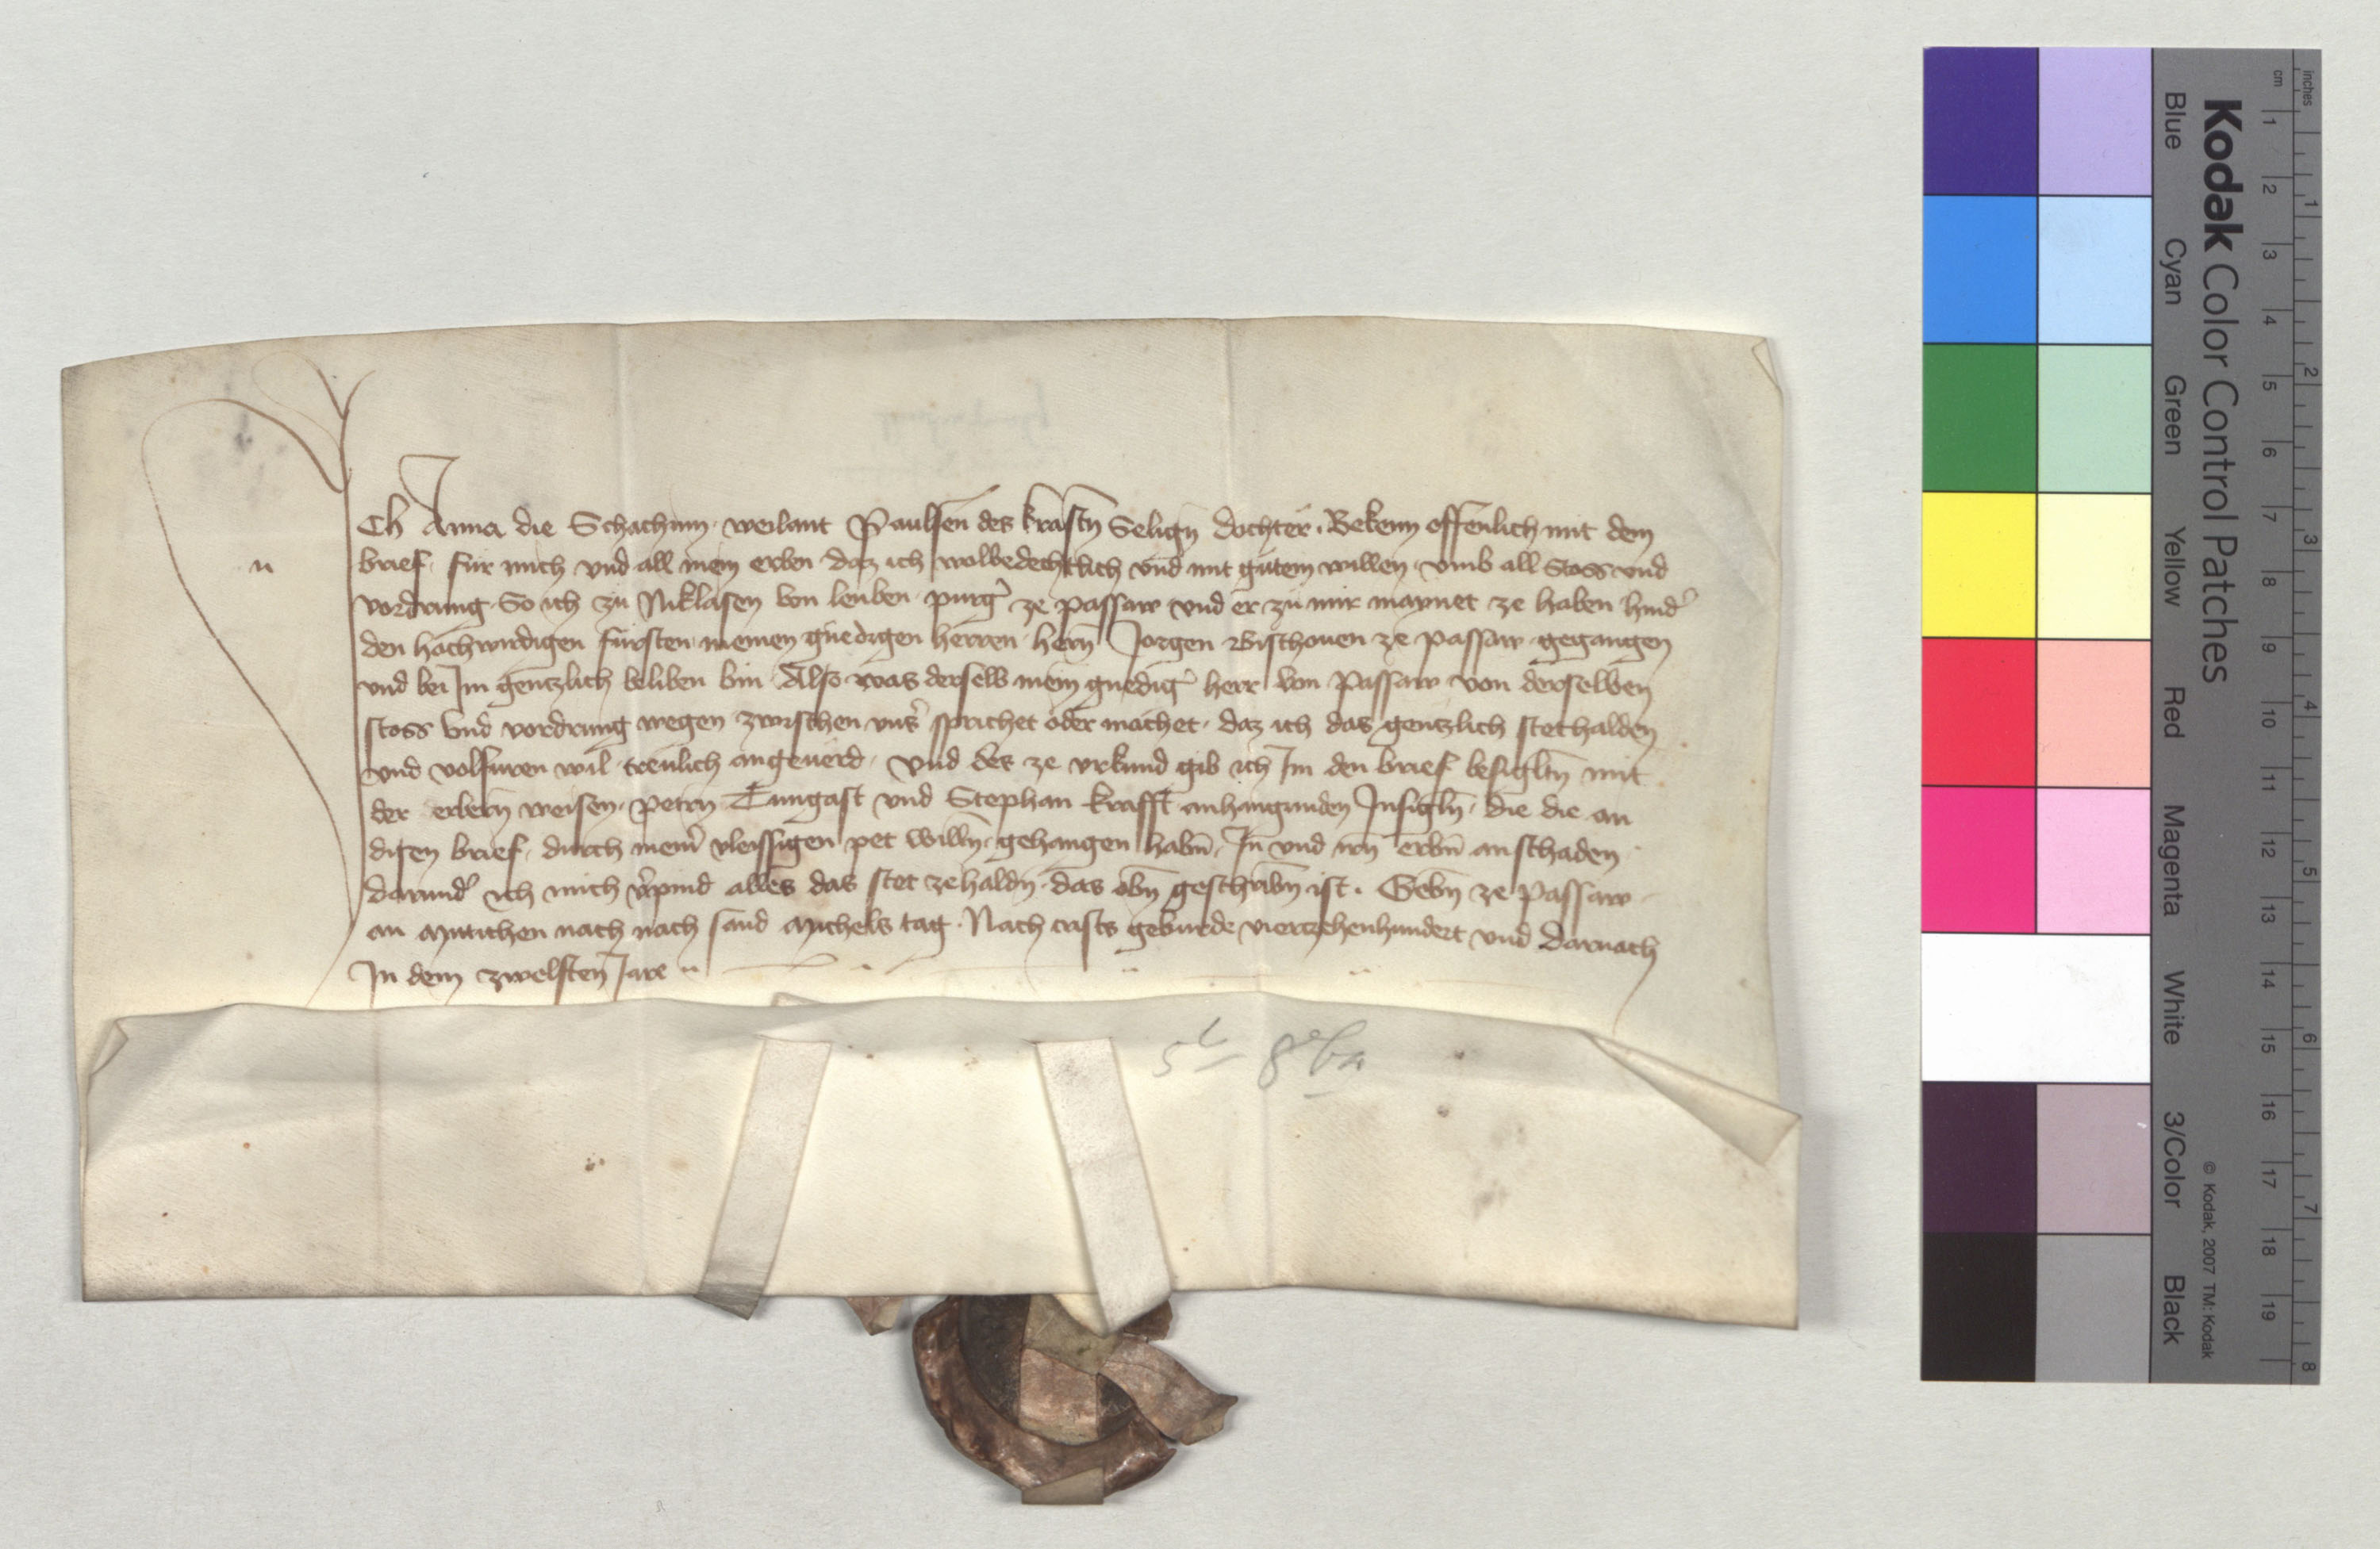 Ich Anna die Schachnin · weilant Paulsen des krafftn Selign dochter · Bekenn offenlich mit dem
brief · für mich vnd all mein erben daz ich wolbedechtlich vnd mit gütem willen · vmb all Stoss vnd
vordrung · So ich zü Niklasen von leuben · purger ze passaw vnd er zü mir maynet ze haben hinder
den hochwirdigen fürsten meinen gnedigen herren · hern Jorgen Bischouen ze passaw · gegangen
vnd bei Im gentzlich beliben bin · Also was derselb mein gnediger herr von Passaw von derselben
stoss vnd vordrung wegen zwischen vnser sprichet oder machet · daz ich das gentzlich stet halden
vnd volfuren wil · treulich angeuerd · vnd des ze vrkund gib ich Im den brief besigltn mit
der erbern weisen · petern Tungast vnd Stephan krafft anhangunden Insigln · die die an
disen brief · durch meiner vleissigen pet willn · gehangen habn · In vnd irn erbn an schaden
darunder ich mich verpind alles das stet ze haldn · das obn geschribn ist · Gebn ze Passaw
an Mitichen nach nach sand Michels tag · Nach crists gebürde vierzehenhundert vnd darnach
In dem zwelften Jare
Kodak Color Control Patches
Blue Cyan Green Yellow Red Magenta White 3/Color Black
© Kodak, 2007 TM: Kodak
cm 1 2 3 4 5 6 7 8 9 10 11 12 13 14 15 16 17 18 19
inches 1 2 3 4 5 6 7 8